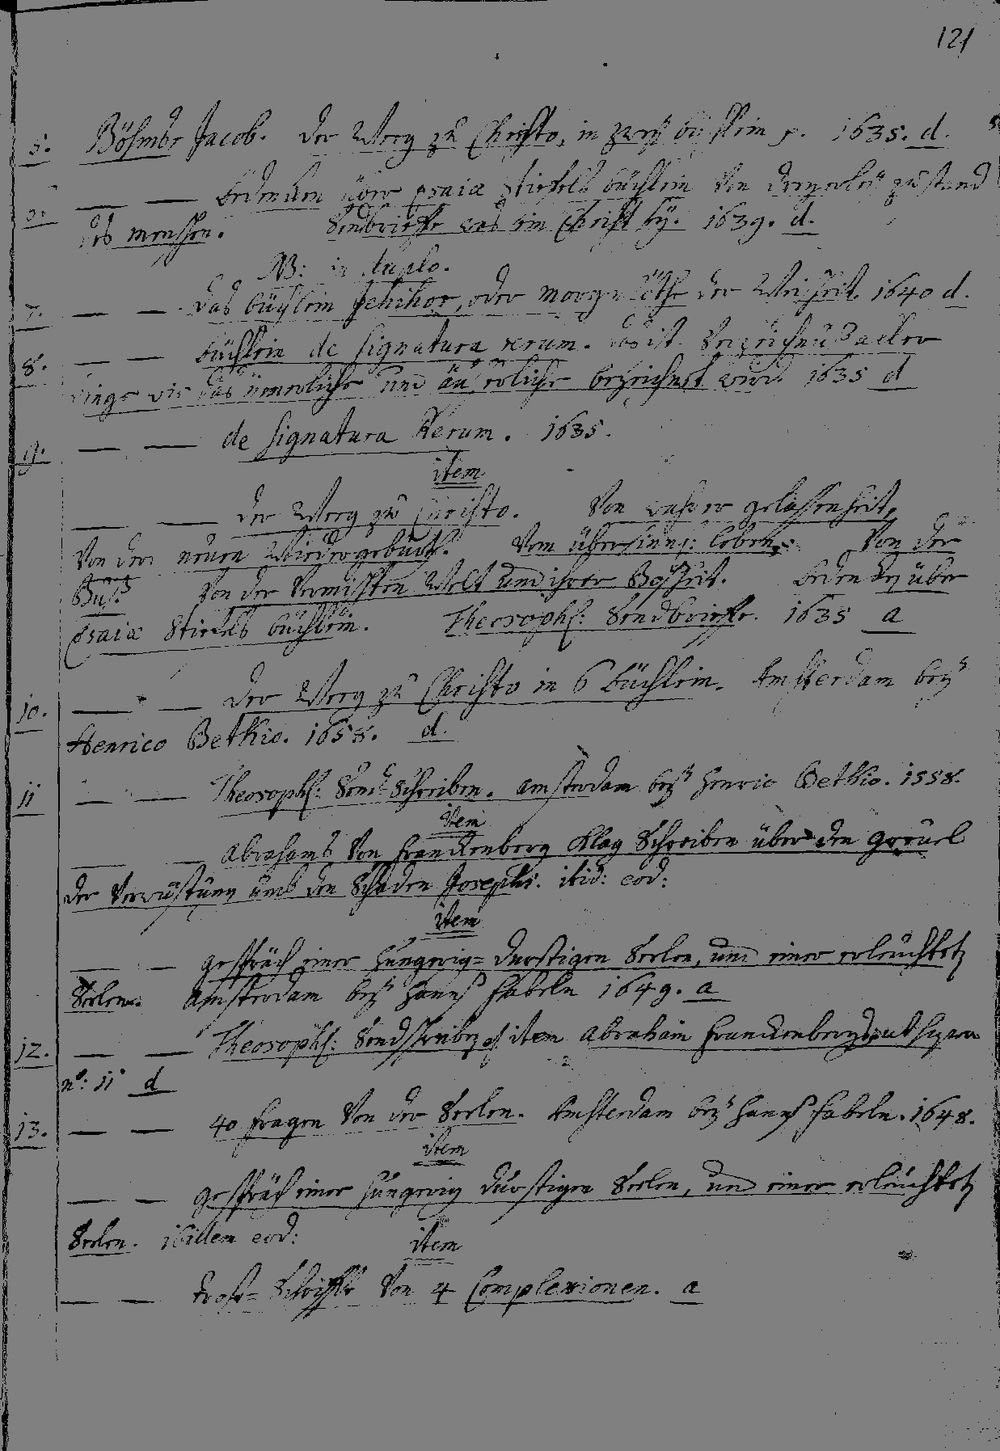 121
5. Böhme Jacob. Der Weeg zu Christo, in zweÿ büchlein p. 1635. d.
— — bedencken über Esaiæ Stiefels büchlein Von dreÿerleÿ zustand
des menschen. Sendbrieffe was ein Christ seÿ. 1639. d.
NB: in duplo.
7. — — das büchlein Jehihor, oder morgenröthe der Weisheit. 1640 d.
8. — — büchlein de signatura rerum. das ist Verzeichnüß aller
dinge wie das innerliche und äuserliche bezeichnet wird. 1635 d
9. — — de signatura Rerum. 1635.
item
— — der Weeg zu Christo. Von wahrer gelassenheit,
Von der neuen Wiedergeburth. Vom übersinnl: leben. Von der
Buß Von der Vermischten Welt und ihrer Boßheit. bedencken über
Esaiæ Stiefels büchlein. Theosoph: Sendbrieffe. 1635 a
10. — — der Weeg zu Christo in 6 büchlein. Amsterdam beÿ
Henrico Bethio. 1658. d.
11 — — Theosoph: Send-Schreiben. Amsterdam beÿ Henric Bethio. 1558.
item
— — Abrahams Von Franckenberg Klag Schreiben über den Greuel
der Verwüstung umb den Schaden Josephs. ibid: eod:
item
— — gespräch einer hungerig= durstigen Seelen, und einer erleuchteten
Seelen. Amsterdam beÿ Hanß Fabeln 1649. a
12. — — Theosoph: Sendschreiben item Abraham Franckenbergs ut supra
n°: 11 d
13. — — 40 fragen Von der Seelen. Amsterdam beÿ Hanß Fabeln. 1648.
item
— — gespräch einer hungerig durstigen Seelen, und einer erleuchteten
Seelen. ibidem eod:
item
— — trost= Schrifft Von 4 Complexionen. a